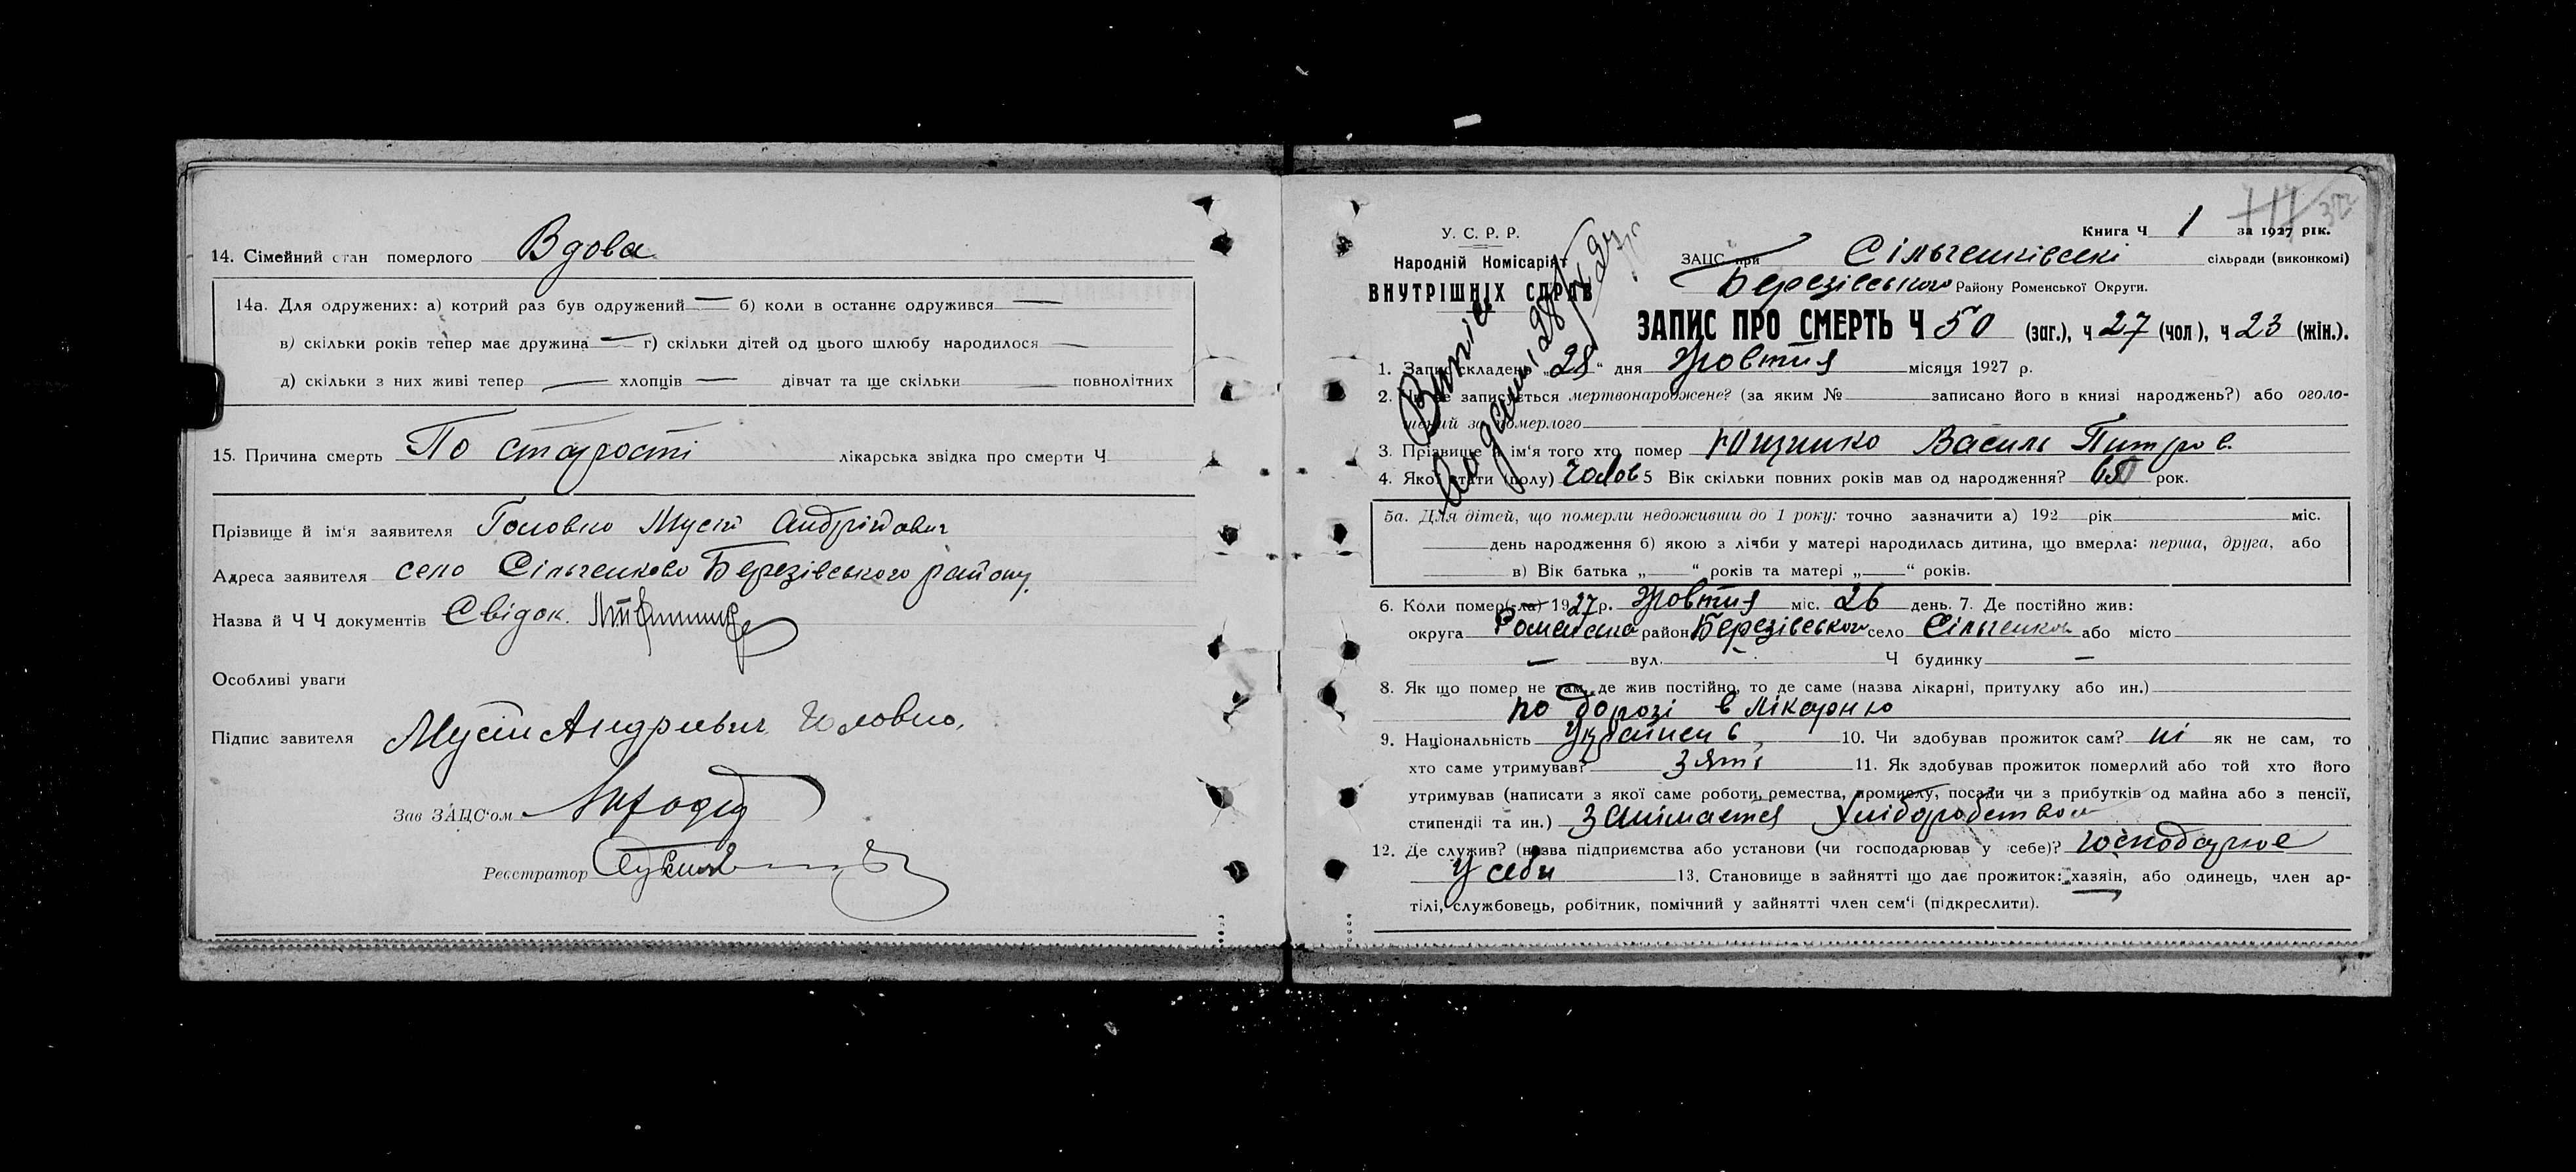 14. Сімейний стан померлого Вдова
14а. Для одружених: а) котрий раз був одружений — б) коли в останнє одружився —
в) скільки років тепер має дружина — г) скільки дітей од цього шлюбу народилося —
д) скільки з них живі тепер — хлопців — дівчат та ще скільки — повнолітних
15. Причина смерть По старості лікарська звідка про смерти Ч
Прізвище й ім'я заявителя Головко Мусій Андрійович
Адреса заявителя село Сільченково Березівського району.
Назва й Ч Ч документів Свідок.
Особливі уваги
Підпис завителя Мусій Андриевич Головко.
Зав ЗАЦС'ом
Реєстратор
У. С. Р. Р.
Народній Комісаріят
ВНУТРІШНІХ СПРАВ
Книга Ч 1 за 1927 рік.
322
ЗАЦС при Сільченківські сільради (виконкомі)
Березівського Району Роменської Округи.
ЗАПИС ПРО СМЕРТЬ Ч 50 (заг.), ч 27 (чол), ч 23 (жін.).
1. Запис складено „28" дня Жовтня місяця 1927 р.
2. Чи не записується мертвонароджене? (за яким № записано його в книзі народжень?) або оголо-
шений за померлого
3. Прізвище й ім'я того хто помер Ющинко Василь Питров.
4. Якої стати (полу) Чолов 5 Вік скільки повних років мав од народження? рок.
5а. Для дітей, що померли недоживши до 1 року: точно зазначити а) 192 рік міс.
день народження б) якою з лічби у матері народилась дитина, що вмерла: перша, друга, або
в) Вік батька „ " років та матері „ " років.
6. Коли помер(-ла) 1927 р. Жовтня міс. 26 день. 7. Де постійно жив:
округа Роменська район Березівського село Сільченков або місто
— вул. Ч будинку —
8. Як що помер не там, де жив постійно, то де саме (назва лікарні, притулку або ин.)
по дорозі в лікарню
9. Національність Украінець 10. Чи здобував прожиток сам? ні як не сам, то
хто саме утримував? зяті 11. Як здобував прожиток померлий або той хто його
утримував (написати з якої саме роботи, ремества, промислу, посади чи з прибутків од майна або з пенсії,
стипендії та ин.) Занімается Хліборобством
12. Де служив? (назва підприємства або установи (чи господарював у себе)? господарює
У себи 13. Становище в зайнятті що дає прожиток: хазяїн, або одинець, член ар-
тілі, службовець, робітник, помічний у зайнятті член сем'ї (підкреслити).